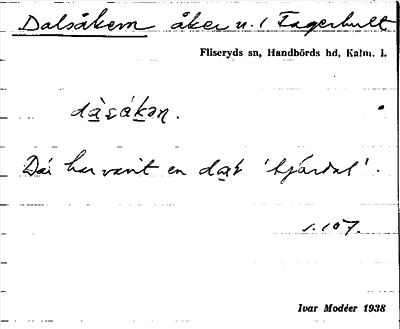 Dalsåkern åker n. 1 Fagerhult
Fliseryds sn, Handbörds hd, Kalm. l.
dàsákən.
Där har varit en dạl 'tjärdal'.
s. 107.
Ivar Modéer 1938